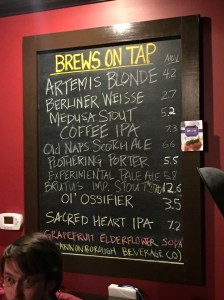 BREWS ON TAP ABV
ARTEMIS BLONDE 4.2
BERLINER WEISSE 2.7
MEDUSA STOUT 5.2
COFFEE IPA 7.3
Old NAPS SCOTCH ALE 6.6
PLOTHERING PORTER 5.5
EXPERIMENTAL PALE ALE 5.8
BRUTUS IMP. STOUT 12.6
Ol' OSSIFIER 3.5
SACRED HEART IPA 7.2
GRAPEFRUIT ELDERFLOWER SODA
CANNONBOROUGH BEVERAGE CO